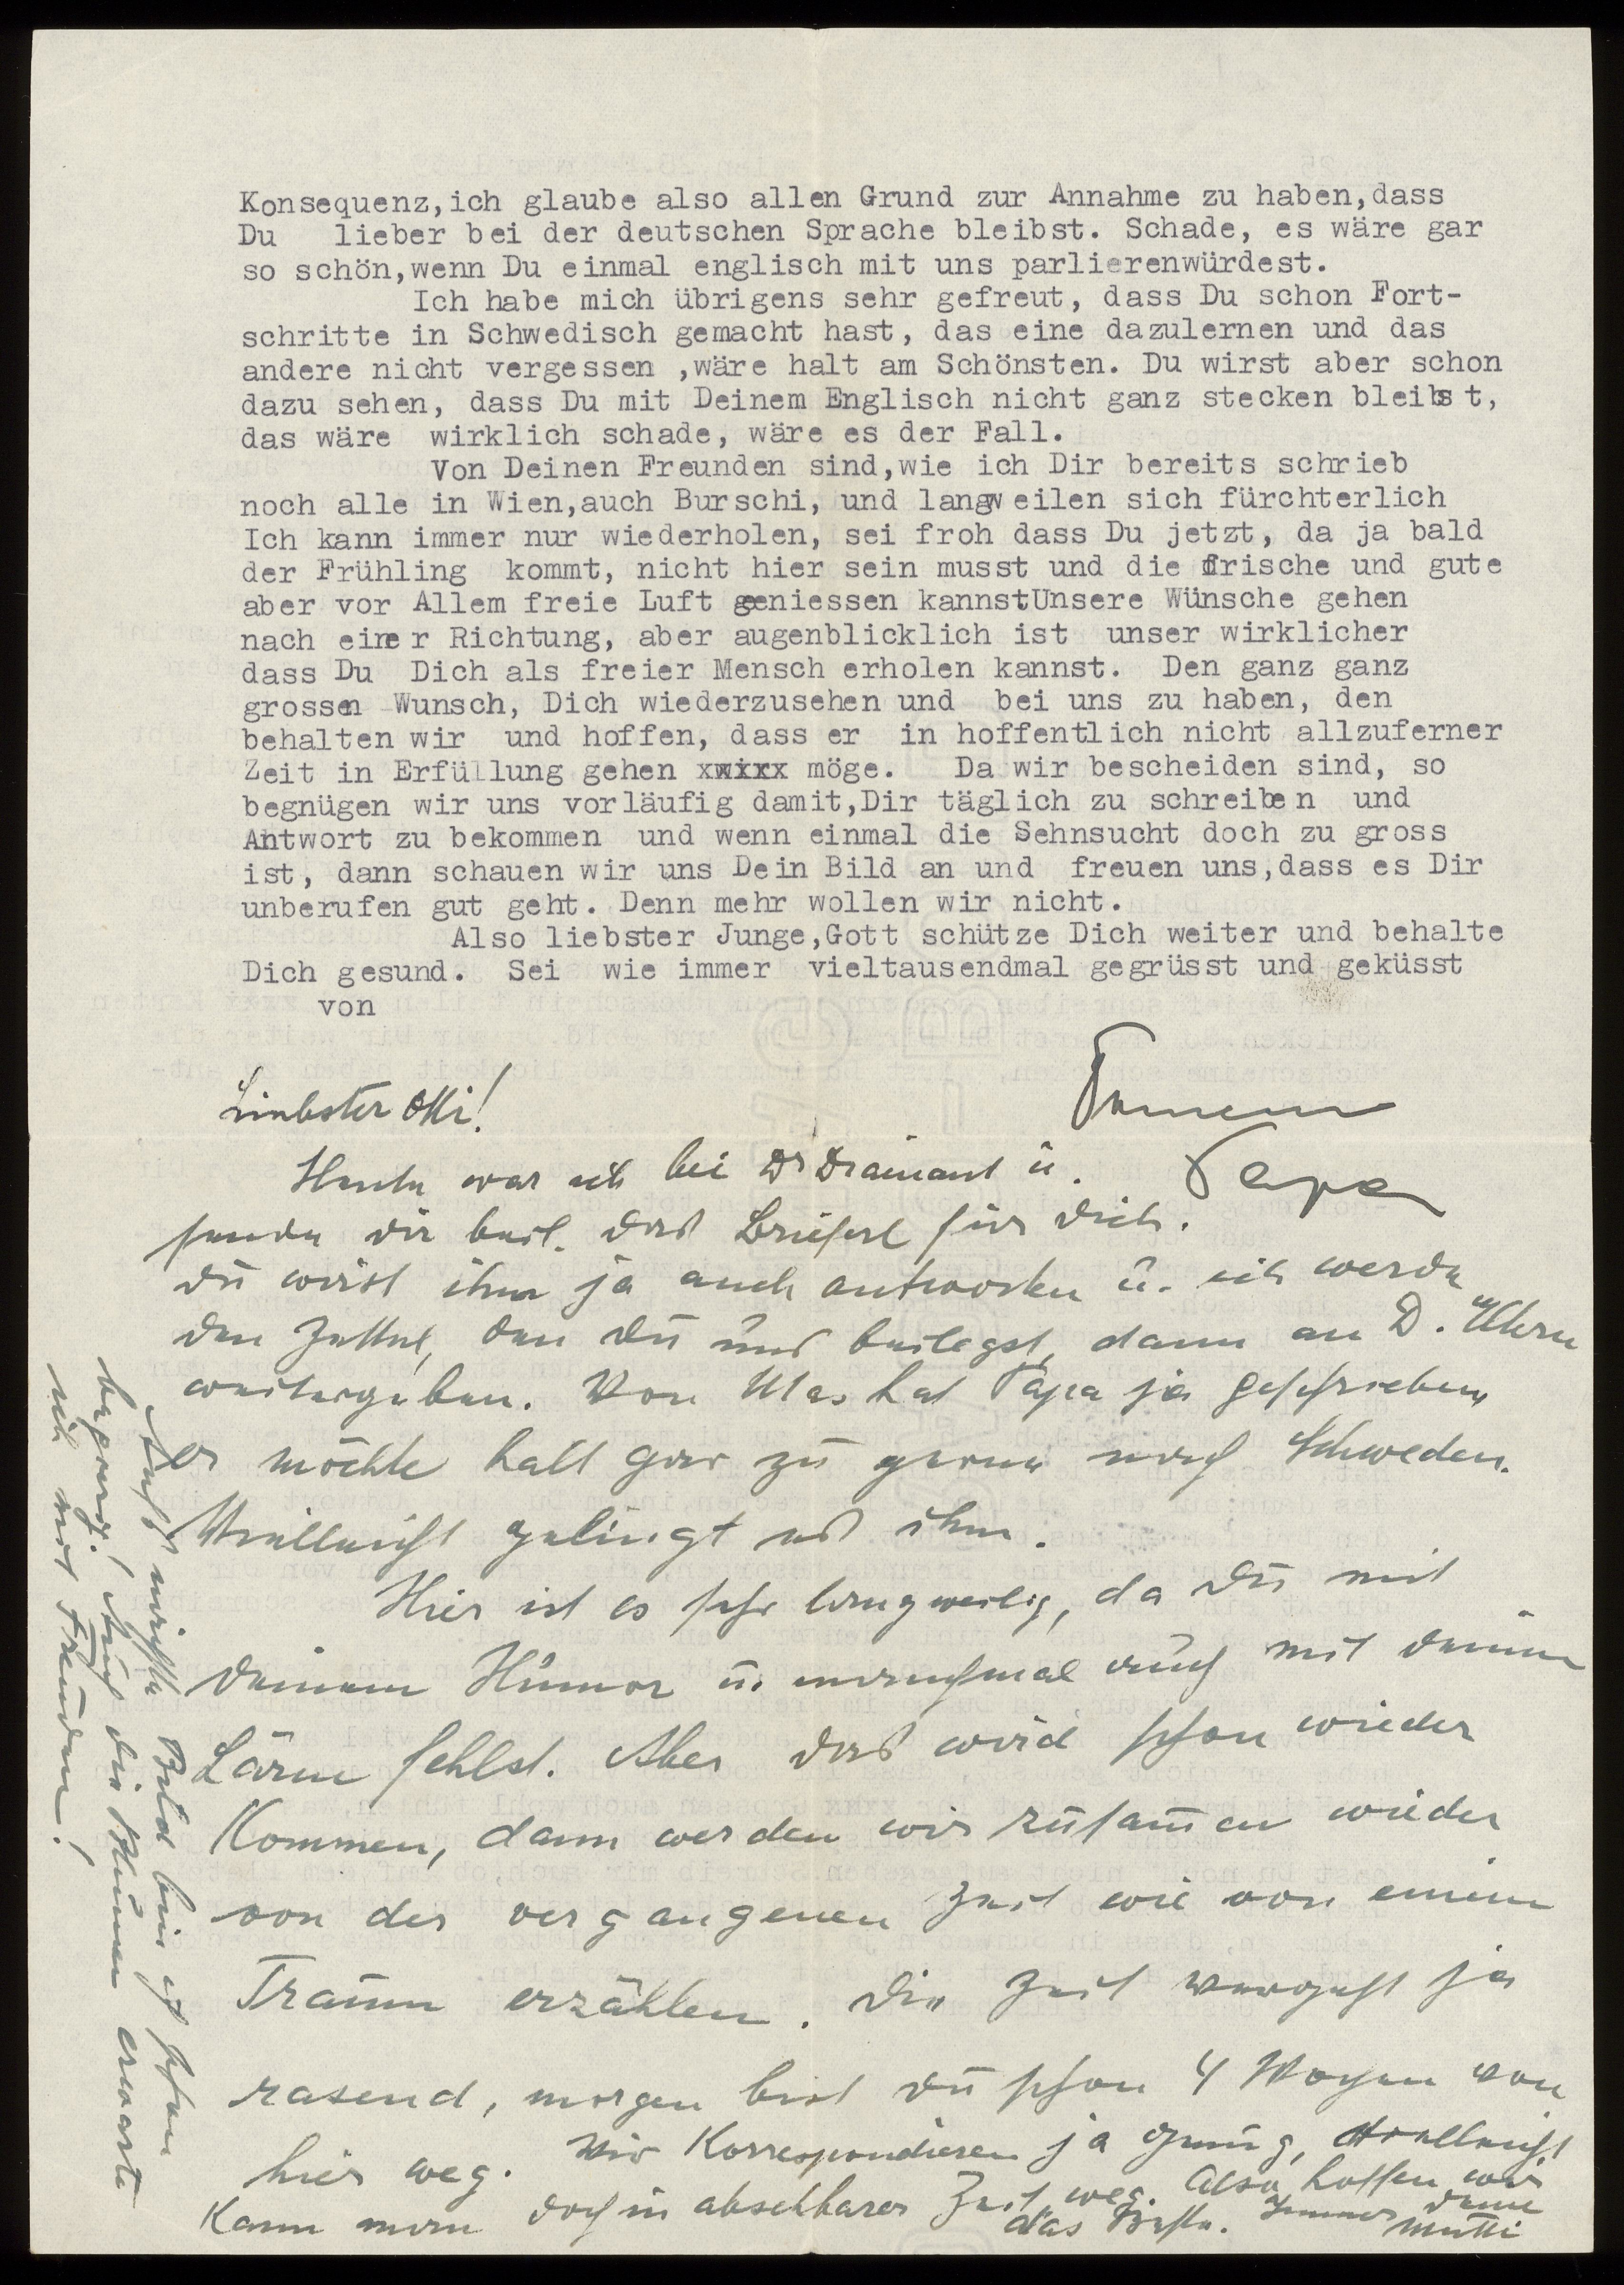 Konsequenz,ich glaube also allen Grund zur Annahme zu haben,dass
Du lieber bei der deutschen Sprache bleibst. Schade, es wäre gar
so schön,wenn Du einmal englisch mit uns parlierenwürdest.
Ich habe mich übrigens sehr gefreut, dass Du schon Fort-
schritte in Schwedisch gemacht hast, das eine dazulernen und das
andere nicht vergessen ,wäre halt am Schönsten. Du wirst aber schon
dazu sehen, dass Du mit Deinem Englisch nicht ganz stecken bleibst,
das wäre wirklich schade, wäre es der Fall.
Von Deinen Freunden sind,wie ich Dir bereits schrieb
noch alle in Wien,auch Burschi, und langweilen sich fürchterlich
Ich kann immer nur wiederholen, sei froh dass Du jetzt, da ja bald
der Frühling kommt, nicht hier sein musst und die frische und gute
aber vor Allem freie Luft geniessen kannstUnsere Wünsche gehen
nach einer Richtung, aber augenblicklich ist unser wirklicher
dass Du Dich als freier Mensch erholen kannst. Den ganz ganz
grossen Wunsch, Dich wiederzusehen und bei uns zu haben, den
behalten wir und hoffen, dass er in hoffentlich nicht allzuferner
Zeit in Erfüllung gehen xwirx möge. Da wir bescheiden sind, so
begnügen wir uns vorläufig damit,Dir täglich zu schreiben und
Antwort zu bekommen und wenn einmal die Sehnsucht doch zu gross
ist, dann schauen wir uns Dein Bild an und freuen uns,dass es Dir
unberufen gut geht. Denn mehr wollen wir nicht.
Also liebster Junge,Gott schütze Dich weiter und behalte
Dich gesund. Sei wie immer vieltausendmal gegrüsst und geküsst
von
Deinem
Papa
Liebster Otti!
Heute war ich bei Dr Diamant u.
sende dir beil. das Brieferl für dich.
Du wirst ihm ja auch antworten u. ich werde
den Zettel, den Du uns beilegst, dann an D.
weitergeben. Von Max hat Papa ja geschrieben,
er möchte halt gar zu gerne nach Schweden.
Vielleicht gelingt es ihm.
Hier ist es sehr langweilig, da Du mit
deinem Humor u. manchmal auch mit deinem
Lärm fehlst. Aber das wird schon wieder
kommen, dann werden wir zusammen wieder
von der vergangenen Zeit wie von einem
Traum erzählen. Die Zeit vergeht ja
rasend, morgen bist Du schon 4 Wochen von
hier weg. Wir korrespondieren ja genug, Vielleicht
kann man doch in absehbarer Zeit weg. Also hoffen wir
das Beste. Immer deine
Mutti
Aufs nächste Bild bin ich schon
begierig! Auch die Blumen erwarte
ich mit Freuden!